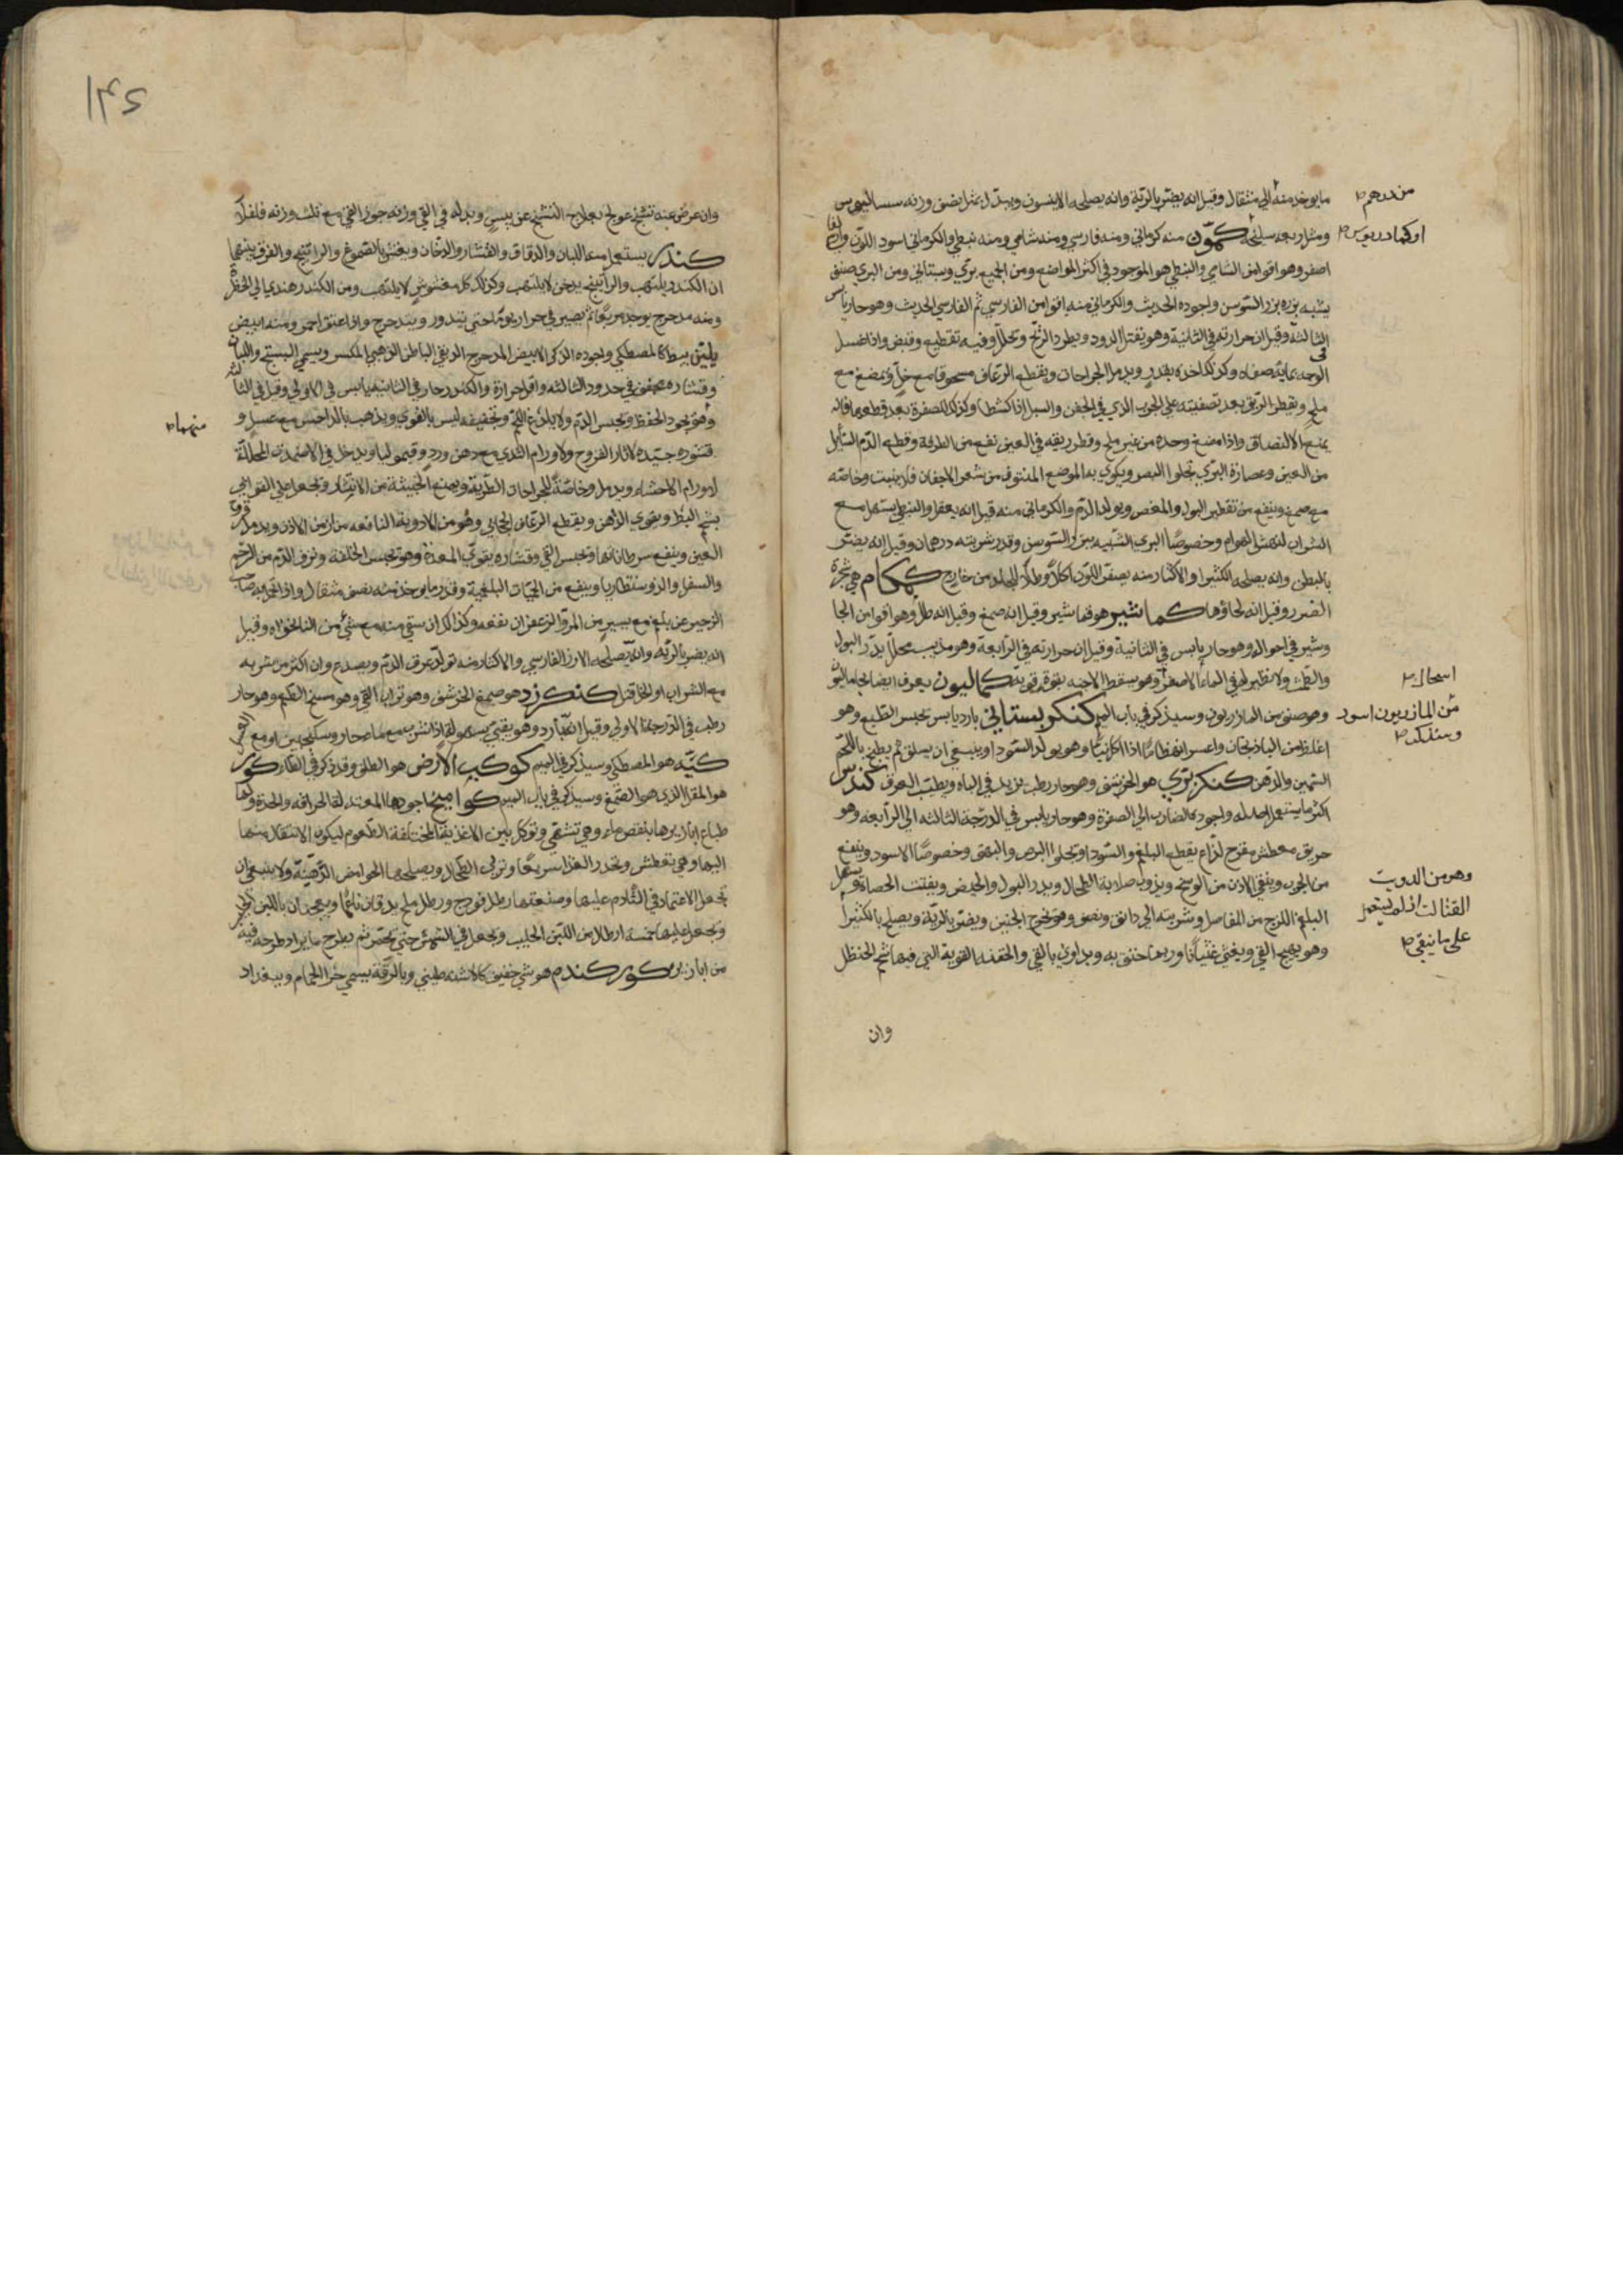 ما يوخذ منه الي مثقال وقيل انه يضر بالرية وانه يصلحه الانيسون وبدله مثل نصف وزنه سساليوس
من درهم
ومثل ربعه سليخه كمون منه كرماني ومنه فارسي ومنه شامي ومنه نبطي والكرماني اسود اللون والفا
اصفر وهو اقوا من الشامي والنبطي هو الموجود في اكثر المواضع ومن الجميع بري وبستاني ومن البري صنف
يشبه بزره بزر السوسن واجوده الحديث والكرماني منه اقوا من الفارسي ثم الفارسي الحديث وهو حار يابس
الثالثه وقيل ان حرارته في الثانية وهو يقتل الدود ويطرد الريح ويحلل وفيه تقطيع وقبض واذا غسل
الوجه بمايه صفاه وكذلك اخذه بقدر ويدمل الجراحات ويقطع الرعاف مسحوقا مع خل ويمضغ مع
ملح ويقطر الريق بعد تصفيته علي الجرب الذي في الجفن والسبل اذا كشطا وكذلك للصفرة بعد قطعها فانه
يمنع الالتصاق واذا مضغ وحده من غير ملح وقطر ريقه في العين نفع من الطرفة وقطع الدم السايل
من العين وعصارة البري يجلو البصر ويكوي به الموضع المنتوف من شعر الاجفان فلا ينبت وخاصته
مع صمغ وينفع من تقطير البول والمغص ويولد الدم والكرماني منه قيل انه يعقل والنبطي يسهل مع
الشراب لنهش الهوام وخصوصًا البري الشبيه ببزر السوسن وقدر شربته درهمان وقيل انه يضر
بالبطن وانه يصلحه الكثيرا والاكثار منه يصفر اللون اكلا وطلا للجلد من خارج كمكام هي شجرة
الضرو وقيل انه لحاوها كماشير هو قماشير وقيل انه صمغ وقيل انه طل وهو اقوا من الجا
وشير في احواله وهو حار يابس في الثانية وقيل ان حرارته في الرابعة وهو مذيب محلل يدر البول
والطمث ولا نظير له في الماء الاصفر وهو يسقط الاجنه بقوة قويه كماليون يعرف ايضا بخاماليون
اسحال
وهو صنف من المازريون وسيذكر في باب الميم كنكر بستاني بارد يابس يحبس الطبع وهو
من المازريون اسود
اغلظ من الباذنجان واعسر انهضامًا اذا اكل نيا وهو يولد السودا وينبغي ان يسلق ثم يطبخ باللحم
السمين والدهن كنكر بري هو الحرشف وهو حار رطب يزيد في الباه ويطيب العرق كندس
اكثر ما يستعمل اصله واجوده الضارب الي الصفرة وهو حار يابس في الدرجة الثالثه الي الرابعه وهو
حريق معطش مقرح لذاع يقطع البلغم والسودا ويجلو البرص والبهق وخصوصًا الاسود وينفع
من الجرب وينقي الاذن من الوسخ ويذوب صلابة الطحال ويدر البول والحيض ويفتت الحصاة ويسهل
وهو من الدويت
البلغم اللزج من المفاصل وشربته الي دانق ونصف وهو يخرج الجنين ويضر بالرية ويصلح بالكثيرا
وهو يهيج القي ويغثي غثيانا وربما خنق به ويداوي بالقي والحقنه القوية التي فيها شحم الحنظل
وان
وان عرض عنه تشنج عولج بعلاج التشنج عن يبس وبدله في القي وزنه جوز القي مع ثلث وزنه فلفلا
كندر يستعمل منه اللبان والدقاق والقشار والدخان ويغش بالصموغ والراتينج والفرق بينهما
ان الكندر يلتهب والراتينج يدخن لا يلتهب وكذلك كل مغشوش لا يلتهب ومن الكندر هندي الي الخضرة
ومنه مدحرج يوخذ مربعا ثم يصير في جرار يوما حتي يتدور ويتدحرج واذا عتق احمر ومنه ابيض
يلين بسط كالمصطكي واجوده الذكر الابيض المدحرج الدبقي الباطن الذهبي المكسر ويسمي البستج واللبان
وقشاره مجفف في حدود الثالثه واقل حرارة والكندر حار في الثانية يابس في الاولي وقيل في الثالثه
وهو يجود الحفظ ويحبس الدم ولا يلذع البتة وتجفيفه ليس بالقوي ويذهب بالداحس مع عسل و
منهما
قشوره جيده لاثار القروح ولاورام الثدي مع دهن ورد وقيموليا ويدخل في الاضمدة المحللة
لاورام الاحشاء ويدمل وخاصة للجراحات الطرية ويمنع الخبيثة من الانتشار ويجعل علي القوابي
بشحم البط ويقوي الذهن ويقطع الرعاف الحجابي وهو من الادوية النافعه من ازمن الاذن ويدمل قروح
العين وينفع سرطاناتها ويحبس القي وقشاره يقوي المعدة وهو يحبس الخلفة ونزف الدم من الرحم
والسفل والدوسنطاريا وينفع من الحميات البلغمية وقدر ما يوخذ منه نصف مثقال واذا تجرا به صاحب
الزحير عن بلغم مع يسير من المر والزعفران نفعه وكذلك ان سقي منه مع شي من النانخواه وقيل
انه يضر بالريه وانه يصلحه الارز الفارسي والاكثار منه تولد عرق الدم ويصدع وان اكثر من شربه
مع الشراب او الخل قتل كنكرزد هو صمغ الحرشف وهو تراب القي وهو مسخ الطعم وهو حار
رطب في الدرجة الاولي وقيل انه بارد وهو يقي بسهولة اذا شرب مع ماء حار وسكنجبين او مع
كيه هو المصطكي وسيذكر في الميم كوكب الارض هو الطلق وقد ذكر في الطاء كور
هو المقل الذي هو الصمغ وسيذكر في باب الميم كواميخ اجودها المعتدلة الحرافه والحدة ولها
طباع ابازيرها بنقص ماء وهي تشهي وتوكل بين الاغذية المختلفة الطعوم ليكون الانتقال منها
اليها وهي تعطش وتحدر الغذا سريعا وتذيب الطحال ويصلحها الحوامض الدهنية ولا ينبغي ان
يجعل الاعتماد في التادم عليها وصنعتها رطل فودج ورطل ملح يدقان ناعما ويعجنان باللبن الحليب
ويجعل عليها خمسة ارطال من اللبن الحليب ويجعل في الشمس حتي يختمر ثم يطرح ما يراد طرحه فيه
من ابازير كور كندم هو شي خفيف كالاشنه طيني وبالرقة يسمي خرا الحمام وببغداد